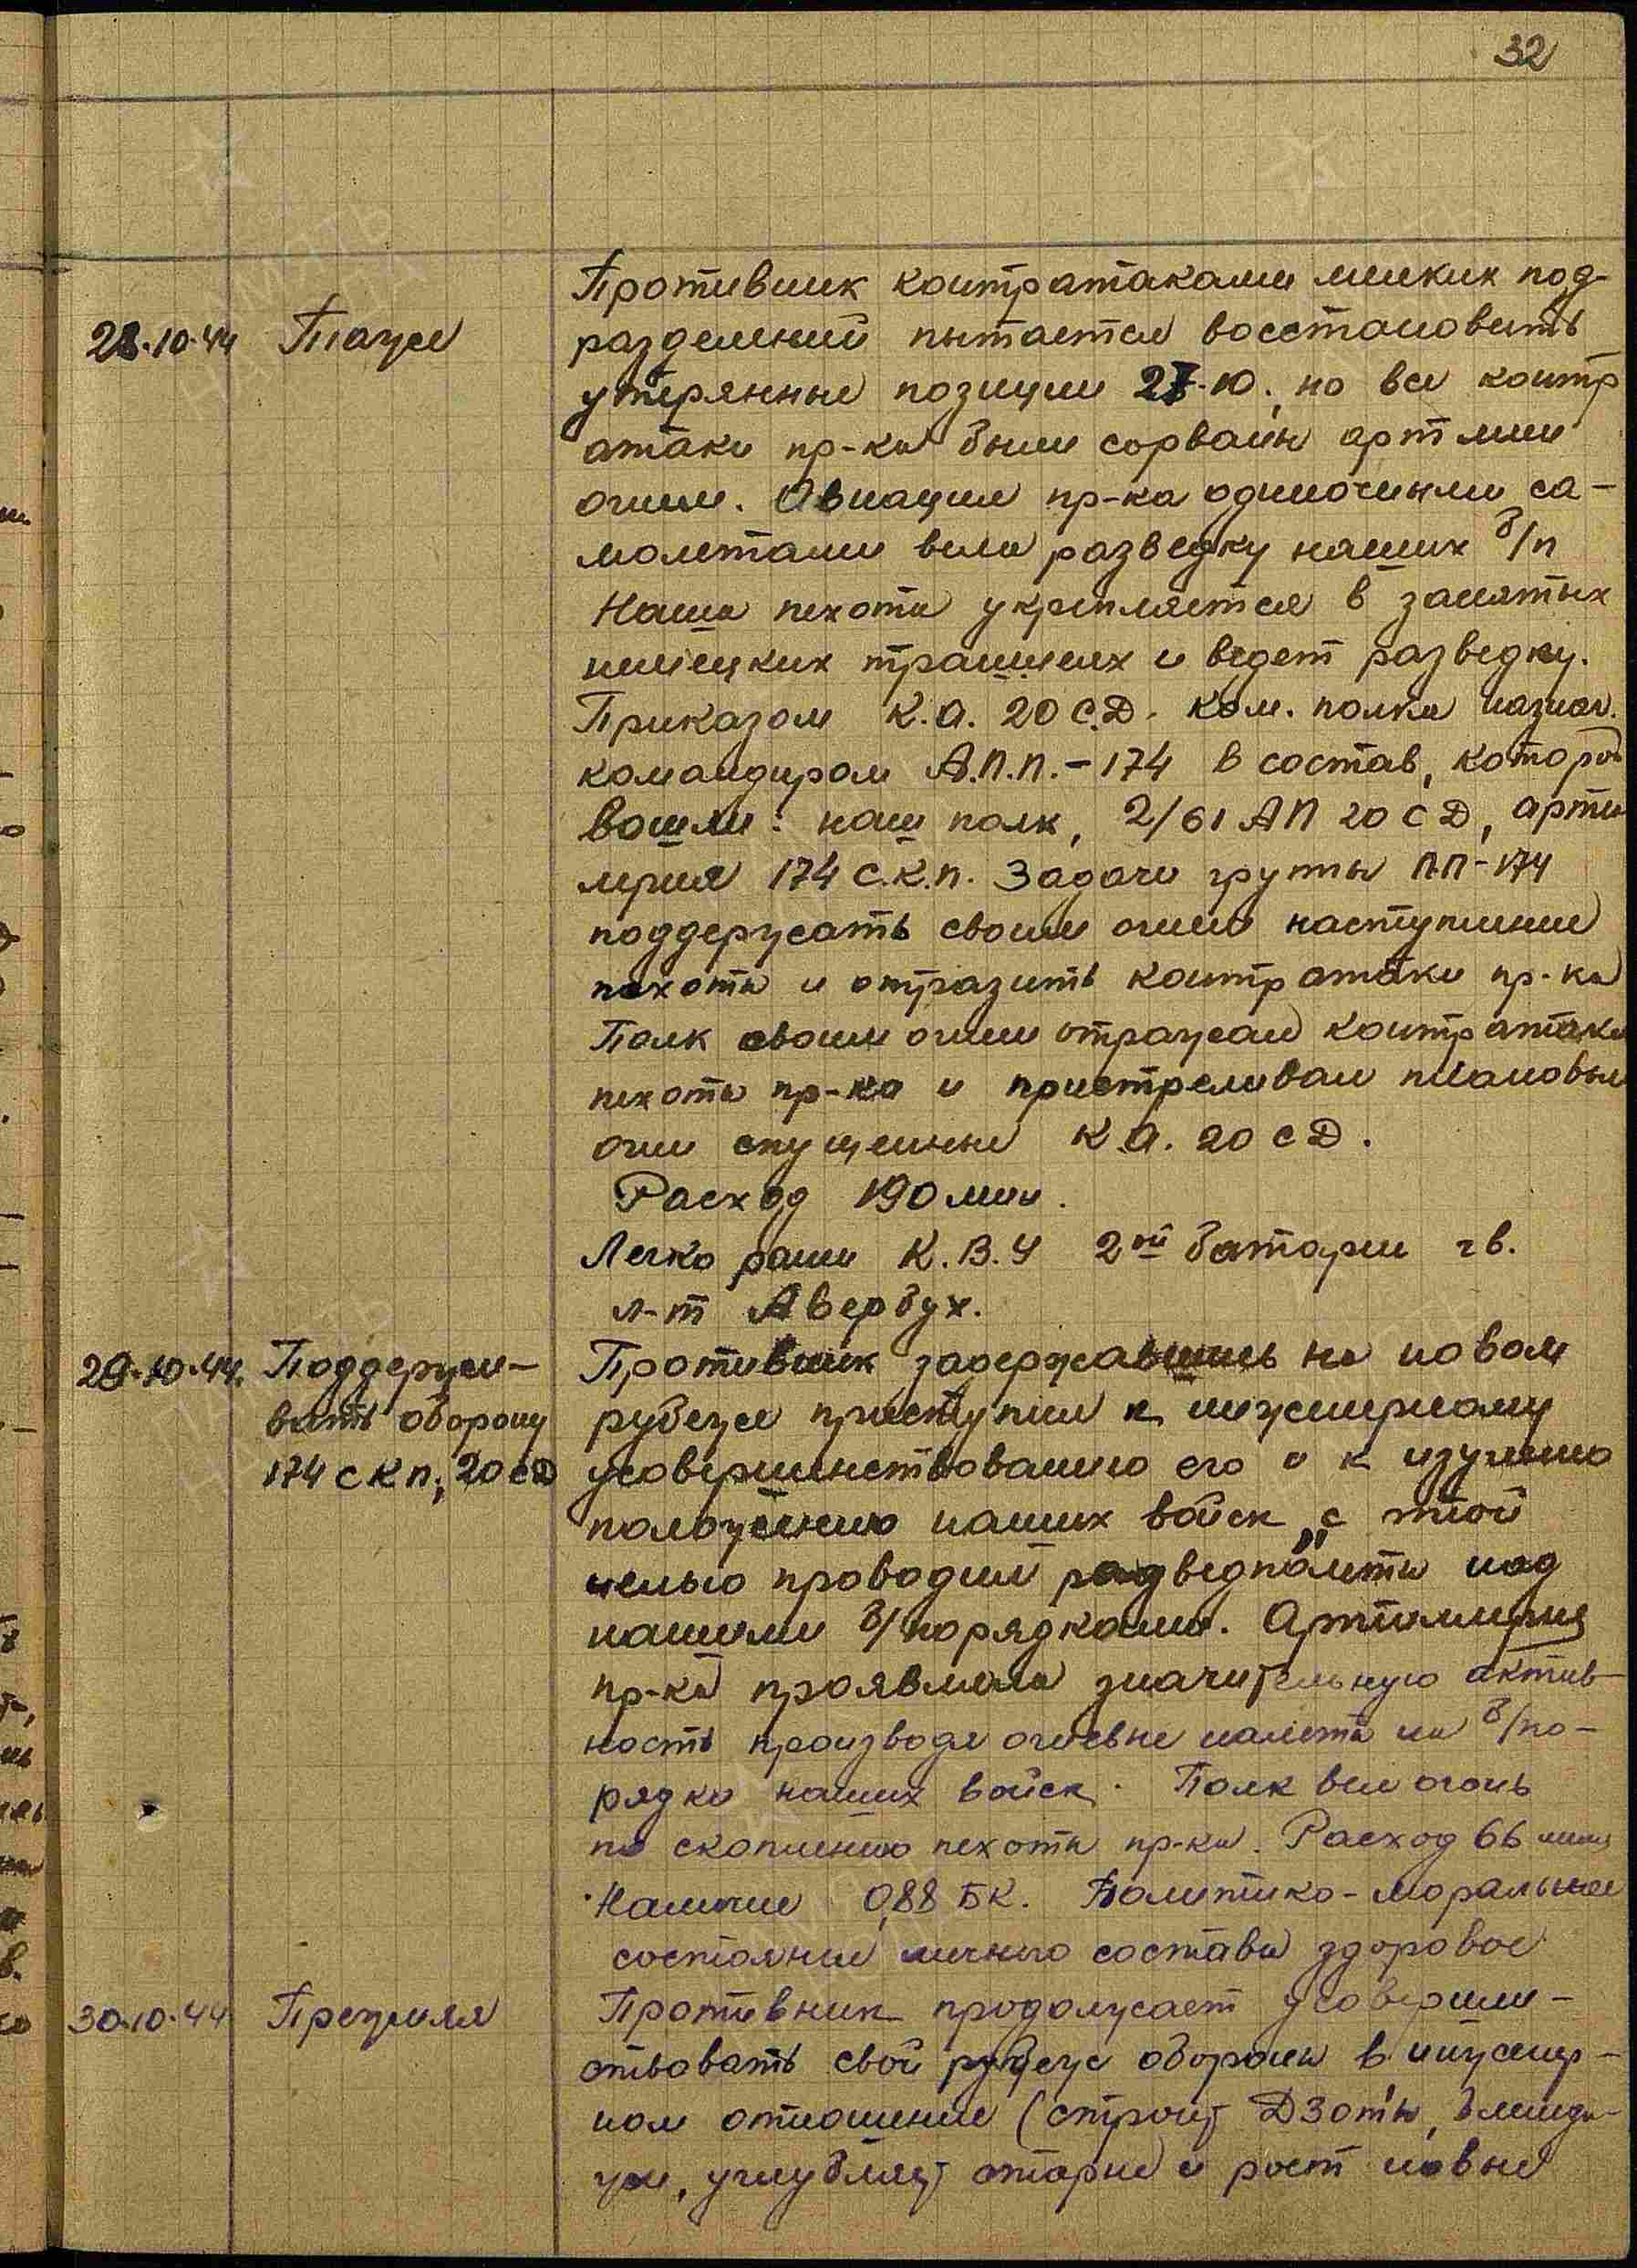 32
28.10.44 Таже
Противник контратаками мелких под-
разделений пытается восстановить
утерянные позиции 27.10., но все контр
атаки пр-ка были сорваны арт мин
огнем. Авиация пр-ка одиночными са-
молетами вела разведку наших б/п
Наша пехота укрепляется в занятых
немецких траншеях и ведет разведку.
Приказом К.А. 20 С.Д. ком. полка назнач.
командиром А.П.П.-174 в состав, которой
вошли: наш полк, 2/61 АП 20 СД, арти
лерия 174 С.К.П. Задачи групы ПП-174
поддержать своим огнем наступление
пехоты и отразить контратаки пр-ка
Полк своим огнем отражал контратаки
пехоты пр-ка и пристреливал плановые
огни спущенные К.А. 20 СД.
Расход 190 мин.
Легко ранен К.В.У 2ой батареи гв.
л-т Авербух.
29.10.44. Поддержи-
вать оборону
174 СКП, 20 СД
Противник задержавшись на новом
рубеже приступил к инженерному
усовершенствованию его и к изучению
положению наших войск, с этой
целью проводил разведполеты над
нашими б/порядками. Артиллерия
пр-ка проявляла значительную актив-
ность производя огневые налеты на б/по-
рядки наших войск. Полк вел огонь
по скоплению пехоты пр-ка. Расход 66 мин
Наличие 0,88 БК. Политико-моральное
состояние личного состава здоровое
30.10.44 Прежняя
Противник продолжает усовершен-
ствовать свой рубеж обороны в инженер-
ном отношение (строит ДЗоты, блинда-
жи, углубляет старые и роет новые